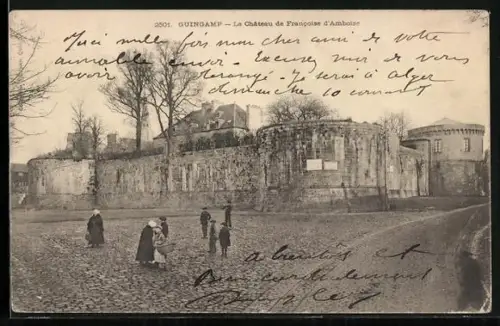 2501. GUINGAMP — Le Château de Françoise d'Amboise
Merci mille fois mon cher ami de votre
aimable envoi. Excusez moi de vous
avoir dérangé. Je serai à alger
dimanche 10 courant
a bientôt et
bien cordialement